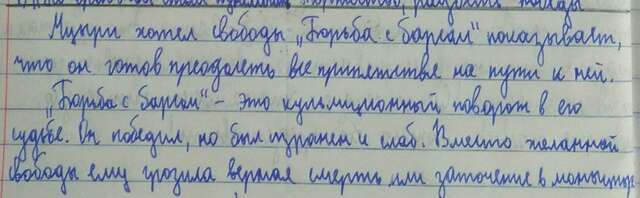 Мцыри хотел свободы „Борьба с барсом" показывает,
что он готов преодолеть все припятствя на пути к ней.
„Борьба с барсом" – это кульмиционный поворот в его
судьбе. Он победил, но был изранен и слаб. Вместо желанной
свободы ему грозила верная смерть или заточение в монастыре